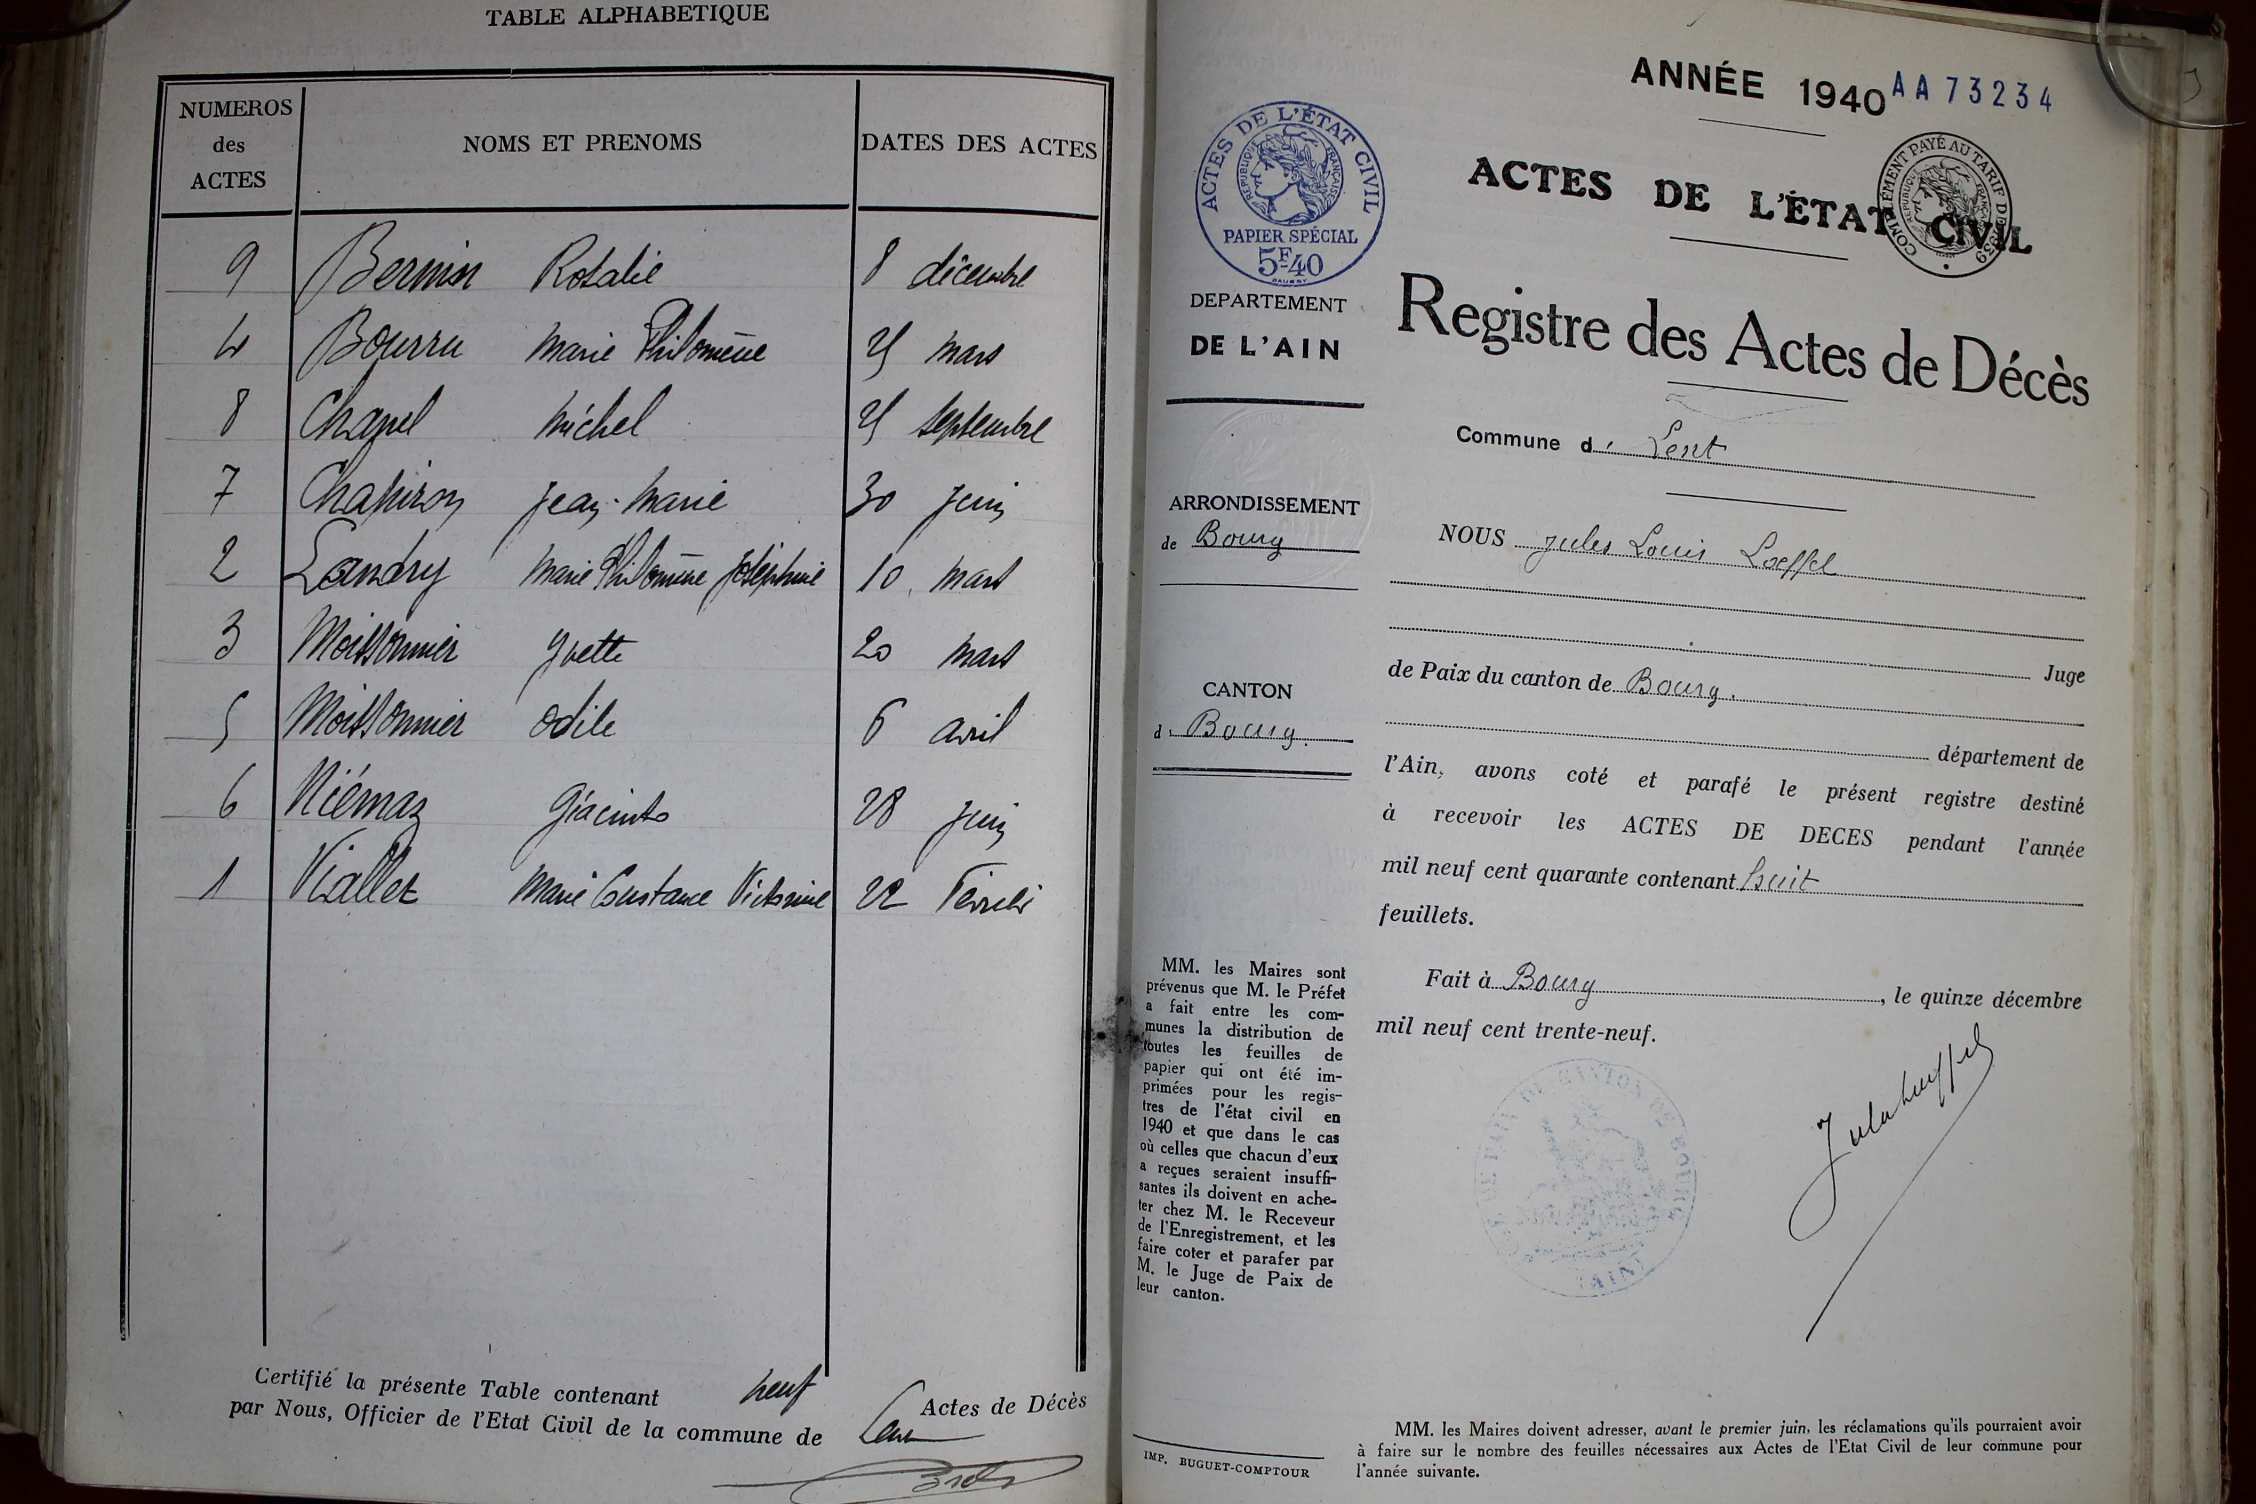 TABLE ALPHABETIQUE
NUMEROS des ACTES NOMS ET PRENOMS DATES DES ACTES
9 Bernin Rosalie 8 décembre
4 Bourru Marie Philomène 25 mars
8 Chapel Michel 25 septembre
7 Chapiron Jean-Marie 30 juin
2 Landry Marie Philomène Joséphine 10 mars
3 Moissonnier Yvette 20 mars
5 Moissonnier Odile 6 avril
6 Niémaz Giacinto 28 juin
1 Viallet Marie Constance Victorine 22 Février
Certifié la présente Table contenant neuf Actes de Décès
par Nous, Officier de l'Etat Civil de la commune de Lent
ANNÉE 1940 AA73234
ACTES DE L'ÉTAT CIVIL
RÉPUBLIQUE FRANÇAISE
PAPIER SPÉCIAL
5F40
COMPLÉMENT PAYÉ AU TARIF DE 1939
RÉPUBLIQUE FRANÇAISE
ACTES DE L'ÉTAT CIVIL
DEPARTEMENT
DE L'AIN
Registre des Actes de Décès
Commune d Lent
ARRONDISSEMENT
de Bourg
NOUS Jules Louis Loeffel
Juge
de Paix du canton de Bourg.
CANTON
d Bourg.
département de
l'Ain, avons coté et parafé le présent registre destiné
à recevoir les ACTES DE DECES pendant l'année
mil neuf cent quarante contenant huit
feuillets.
Fait à Bourg, le quinze décembre
mil neuf cent trente-neuf.
MM. les Maires sont
prévenus que M. le Préfet
a fait entre les com-
munes la distribution de
toutes les feuilles de
papier qui ont été im-
primées pour les regis-
tres de l'état civil en
1940 et que dans le cas
où celles que chacun d'eux
a reçues seraient insuffi-
santes ils doivent en ache-
ter chez M. le Receveur
de l'Enregistrement, et les
faire coter et parafer par
M. le Juge de Paix de
leur canton.
IMP. BUGUET-COMPTOUR
MM. les Maires doivent adresser, avant le premier juin, les réclamations qu'ils pourraient avoir
à faire sur le nombre des feuilles nécessaires aux Actes de l'Etat Civil de leur commune pour
l'année suivante.